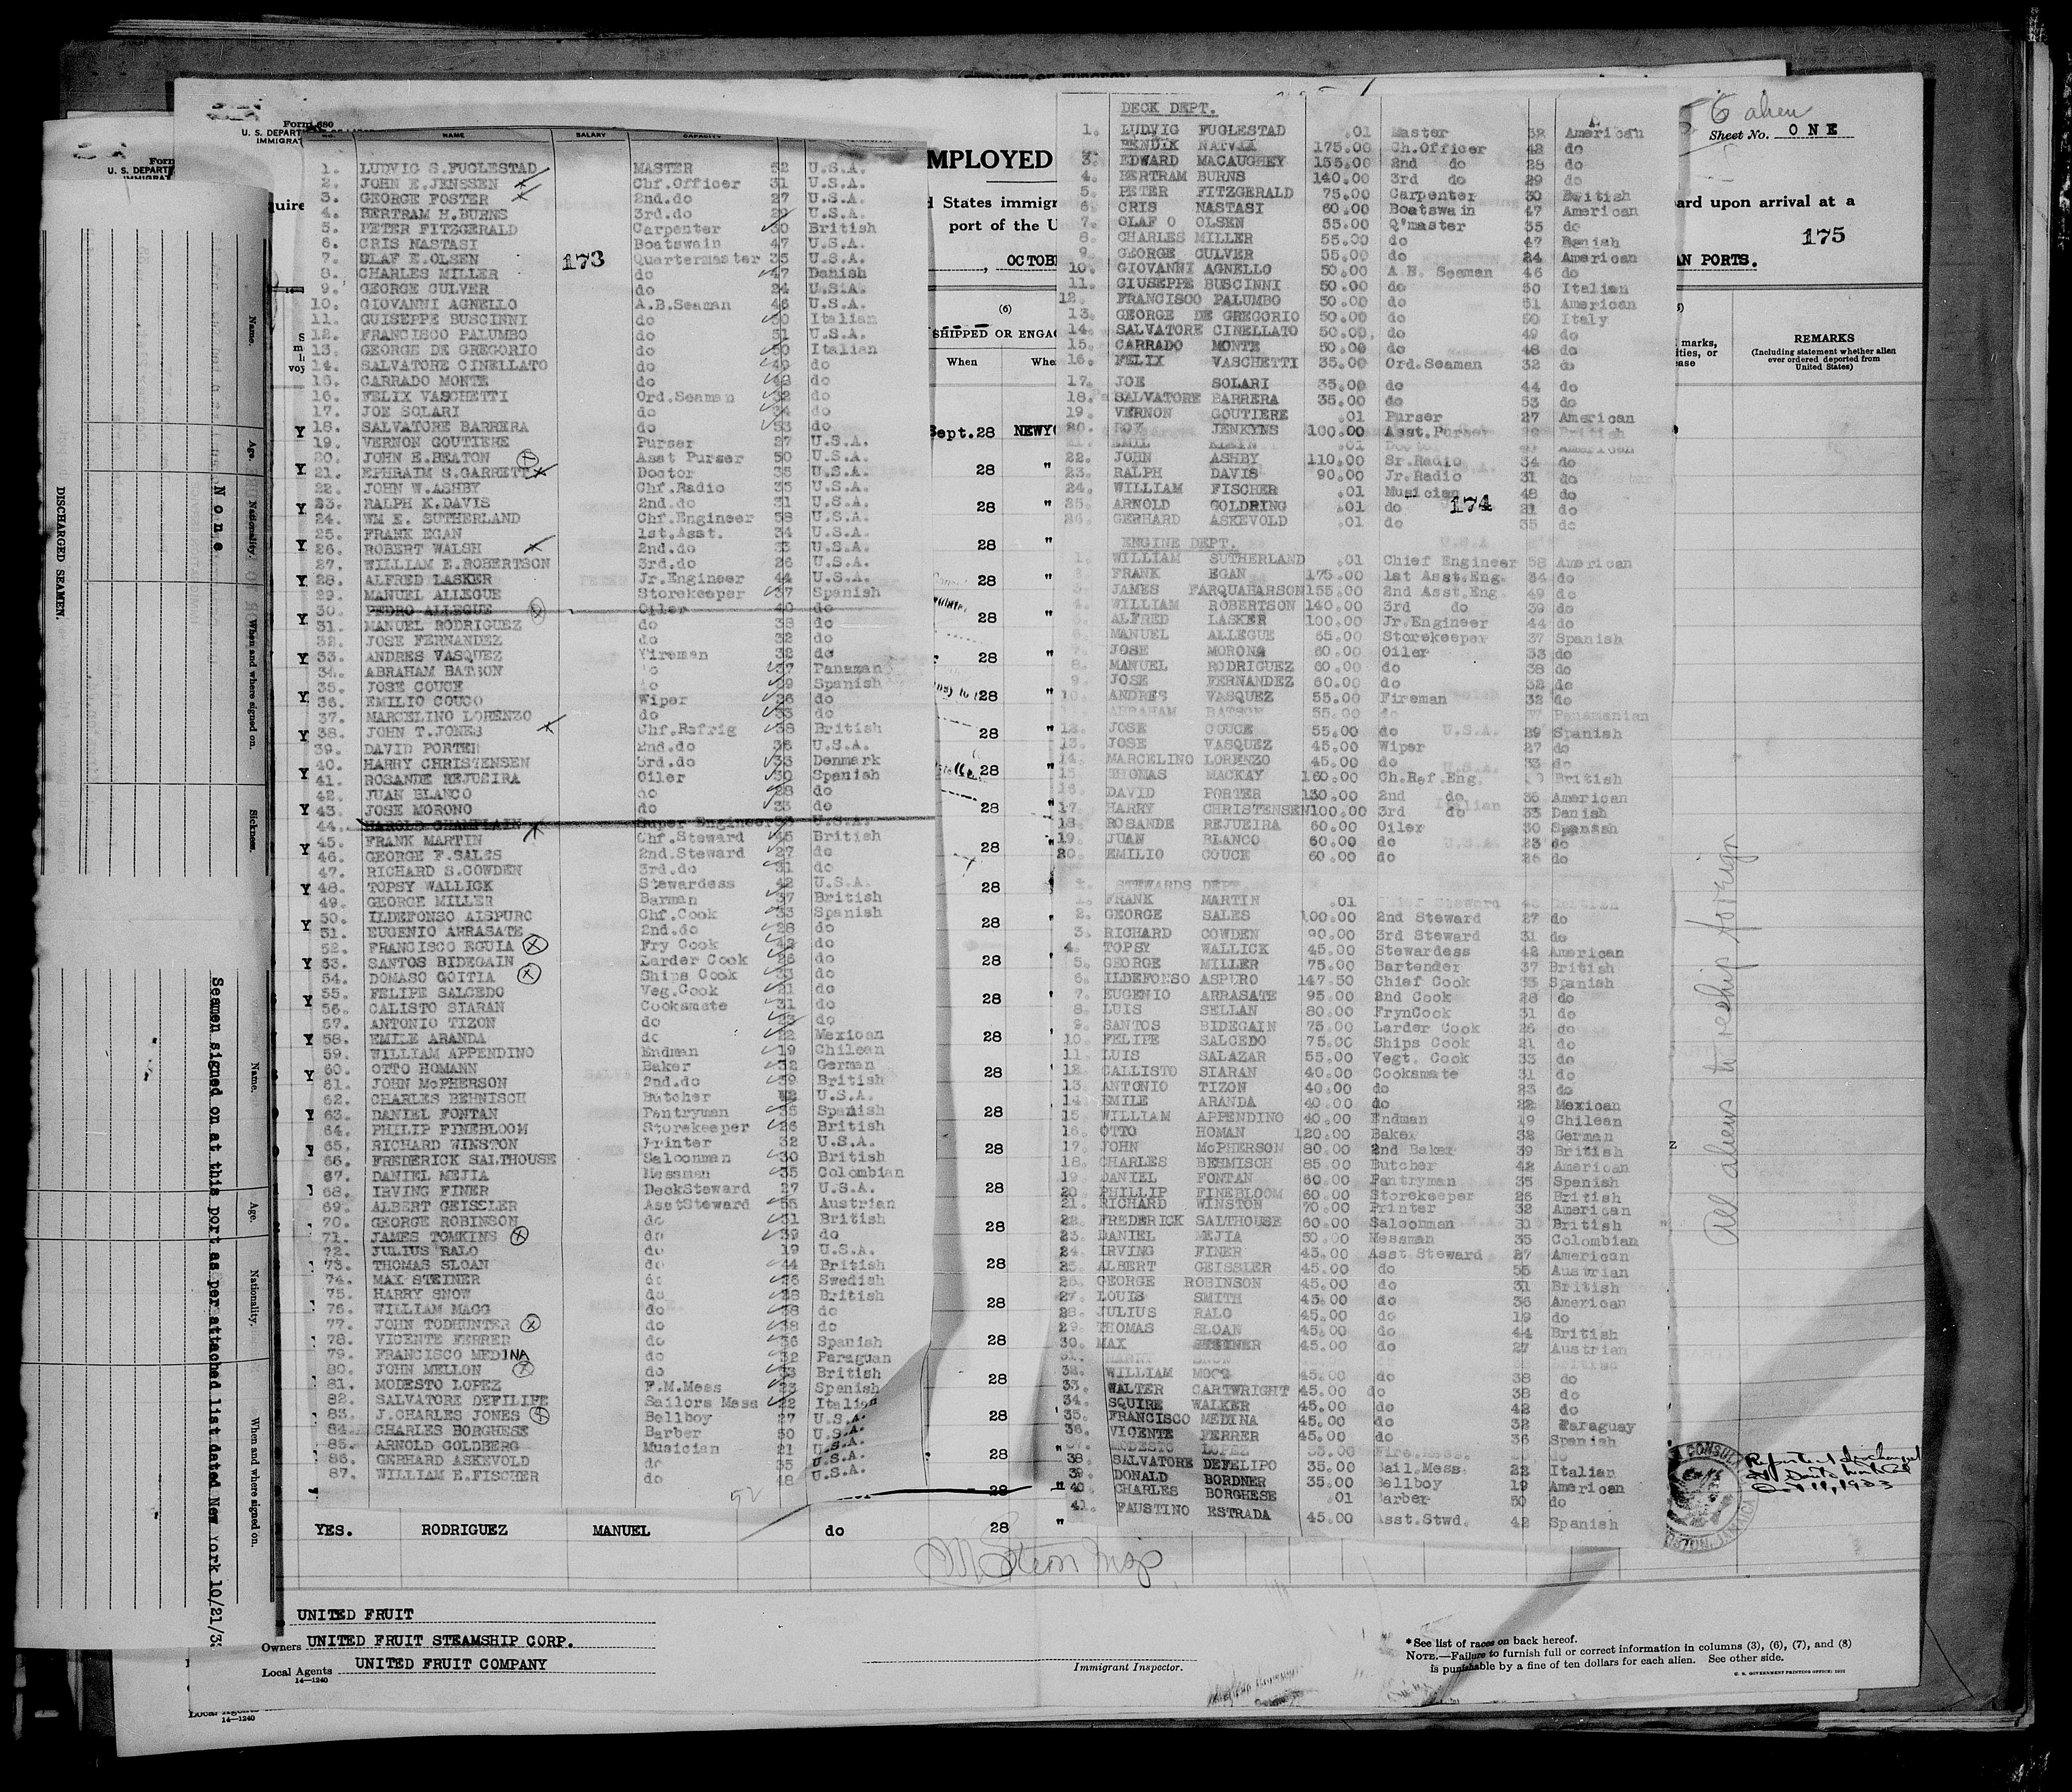 6 alien
Sheet No. ONE
Form 680
U. S. DEPART
IMMIGRAT
U. S. DEPARTME
MPLOYED
d States immigr
port of the U
ard upon arrival at a
175
OCTOB
AN PORTS.
(6)
SHIPPED OR ENGAG
When Whe
marks,
ities, or
ease
REMARKS
(Including statement whether alien ever ordered deported from United States)
Sept.28 NEWYO
NAME SALARY CAPACITY
173
1. LUDVIG S.FUGLESTAD MASTER 52 U.S.A.
2. JOHN E.JENSSEN Chf.Officer 31 U.S.A.
3. GEORGE FOSTER 2nd.do 27 U.S.A.
4. BERTRAM H.BURNS 3rd.do 29 U.S.A.
5. PETER FITZGERALD Carpenter 30 British
6. CRIS NASTASI Boatswain 47 U.S.A.
7. OLAF E.OLSEN Quartermaster 35 U.S.A.
8. CHARLES MILLER do 47 Danish
9. GEORGE CULVER do 24 U.S.A.
10. GIOVANNI AGNELLO A.B.Seaman 46 U.S.A.
11. GUISEPPE BUSCINNI do 50 Italian
12. FRANCISCO PALUMBO do 51 U.S.A.
13. GEORGE DE GREGORIO do 50 Italian
14. SALVATORE CINELLATO do 49 do
15. CARRADO MONTE do 48 do
16. FELIX VASCHETTI Ord.Seaman 32 do
17. JOE SOLARI do 34 do
18. SALVATORE BARRERA do 53 do
19. VERNON GOUTIERE Purser 27 U.S.A.
20. JOHN E.BEATON Asst Purser 50 U.S.A.
21. EPHRAIM S.GARRETT Doctor 35 U.S.A.
22. JOHN W.ASHBY Chf.Radio 35 U.S.A.
23. RALPH K.DAVIS 2nd.do 31 U.S.A.
24. WM E. SUTHERLAND Chf.Engineer 58 U.S.A.
25. FRANK EGAN 1st.Asst. 34 U.S.A.
26. ROBERT WALSH 2nd.do 33 U.S.A.
27. WILLIAM E.ROBERTSON 3rd.do 26 U.S.A.
28. ALFRED LASKER Jr.Engineer 44 U.S.A.
29. MANUEL ALLEGUE Storekeeper 37 Spanish
30. PEDRO ALLEGUE Oiler 40 do
31. MANUEL RODRIGUEZ do 38 do
32. JOSE FERNANDEZ do 32 do
33. ANDRES VASQUEZ Fireman 32 do
34. ABRAHAM BATSON do 37 Panaman
35. JOSE COUCE do 29 Spanish
36. EMILIO COUCO Wiper 26 do
37. MARCELINO LORENZO do 33 do
38. JOHN T.JONES Chf.Refrig 38 British
39. DAVID PORTER 2nd.do 35 U.S.A.
40. HARRY CHRISTENSEN 3rd.do 33 Denmark
41. ROSANDE REJUEIRA Oiler 30 Spanish
42. JUAN BLANCO do 28 do
43. JOSE MORONO do 33 do
44. HAROLD CHAMPLAIN Super Engineer U.S.A.
45. FRANK MARTIN Chf.Steward 45 British
46. GEORGE F.SALES 2nd.Steward 27 do
47. RICHARD S.COWDEN 3rd.do 31 do
48. TOPSY WALLICK Stewardess 42 U.S.A.
49. GEORGE MILLER Barman 37 British
50. ILDEFONSO AISPURO Chf.Cook 33 Spanish
51. EUGENIO ARRASATE 2nd.do 28 do
52. FRANCISCO EGUIA Fry Cook 42 do
53. SANTOS BIDEGAIN Larder Cook 26 do
54. DOMASO GOITIA Ships Cook 33 do
55. FELIPE SALCEDO Veg.Cook 21 do
56. CALISTO SIARAN Cooksmate 31 do
57. ANTONIO TIZON do 23 do
58. EMILE ARANDA do 22 Mexican
59. WILLIAM APPENDINO Endman 19 Chilean
60. OTTO HOMANN Baker 32 German
61. JOHN McPHERSON 2nd.do 39 British
62. CHARLES BEHNISCH Butcher 42 U.S.A.
63. DANIEL FONTAN Pantryman 35 Spanish
64. PHILIP FINEBLOOM Storekeeper 26 British
65. RICHARD WINSTON Printer 32 U.S.A.
66. FREDERICK SALTHOUSE Saloonman 30 British
67. DANIEL MEJIA Messman 35 Colombian
68. IRVING FINER DeckSteward 27 U.S.A.
69. ALBERT GEISSLER AsstSteward 55 Austrian
70. GEORGE ROBINSON do 31 British
71. JAMES TOMKINS do 39 do
72. JULIUS RALO do 19 U.S.A.
73. THOMAS SLOAN do 44 British
74. MAX STEINER do 26 Swedish
75. HARRY SNOW do 28 British
76. WILLIAM MAGG do 38 do
77. JOHN TODHUNTER do 38 do
78. VICENTE FERRER do 36 Spanish
79. FRANCISCO MEDINA do 32 Paraguan
80. JOHN MELLON do 33 British
81. MODESTO LOPEZ F.M.Mess 23 Spanish
82. SALVATORE DEFILIPE Sailors Mess 22 Italian
83. J.CHARLES JONES Bellboy 27 U.S.A.
84. CHARLES BORGHESE Barber 50 U.S.A.
85. ARNOLD GOLDBERG Musician 21 U.S.A.
86. GERHARD ASKEVOLD do 35 U.S.A.
87. WILLIAM E.FISCHER do 48 U.S.A.
52
YES. RODRIGUEZ MANUEL do 28 "
DECK DEPT.
1. LUDVIG FUGLESTAD .01 Master 52 American
BENDIK NATVIK 175.00 Ch.Officer 42 do
3. EDWARD MACAUGHEY 155.00 2nd do 28 do
4. BERTRAM BURNS 140.00 3rd do 29 do
5. PETER FITZGERALD 75.00 Carpenter 30 British
6. CRIS NASTASI 60.00 Boatswain 47 American
7. OLAF O OLSEN 55.00 Q'master 35 do
8. CHARLES MILLER 55.00 do 47 Danish
9. GEORGE CULVER 55.00 do 24 American
10. GIOVANNI AGNELLO 50.00 A.B. Seaman 46 do
11. GIUSEPPE BUSCINNI 50.00 do 50 Italian
12. FRANCISCO PALUMBO 50.00 do 51 American
13. GEORGE DE GREGORIO 50.00 do 50 Italy
14. SALVATORE CINELLATO 50.00 do 49 do
15. CARRADO MONTE 50.00 do 48 do
16. FELIX VASCHETTI 35.00 Ord.Seaman 32 do
17. JOE SOLARI 35.00 do 44 do
18. SALVATORE BARRERA 35.00 do 53 do
19. VERNON GOUTIERE .01 Purser 27 American
20. ROY JENKYNS 100.00 Asst.Purser British
21. EMIL KLEIN .01 Doctor American
22. JOHN ASHBY 110.00 Sr.Radio 34 do
23. RALPH DAVIS 90.00 Jr.Radio 31 do
24. WILLIAM FISCHER .01 Musician 48 do
25. ARNOLD GOLDRING .01 do 21 do
26. GERHARD ASKEVOLD .01 do 35 do
174
ENGINE DEPT.
1. WILLIAM SUTHERLAND .01 Chief Engineer 58 American
2. FRANK EGAN 175.00 1st Asst.Eng. 34 do
3. JAMES FARQUAHARSON 155.00 2nd Asst.Eng. 49 do
4. WILLIAM ROBERTSON 140.00 3rd do 39 do
5. ALFRED LASKER 100.00 Jr.Engineer 44 do
6. MANUEL ALLEGUE 65.00 Storekeeper 37 Spanish
7. JOSE MORONO 60.00 Oiler 33 do
8. MANUEL RODRIGUEZ 60.00 do 38 do
9. JOSE FERNANDEZ 60.00 do 32 do
10. ANDRES VASQUEZ 55.00 Fireman 32 do
11. ABRAHAM BATSON 55.00 do 37 Panamanian
12. JOSE COUCE 55.00 do 29 Spanish
13. JOSE VASQUEZ 45.00 Wiper 27 do
14. MARCELINO LORENZO 45.00 do 33 do
15. THOMAS MACKAY 160.00 Ch.Ref.Eng. British
16. DAVID PORTER 130.00 2nd do 36 American
17. HARRY CHRISTENSEN 100.00 3rd do 33 Danish
18. ROSANDE REJUEIRA 60.00 Oiler 30 Spanish
19. JUAN BLANCO 60.00 do 23 do
20. EMILIO COUCE 60.00 do 26 do
STEWARDS DEPT
1. FRANK MARTIN .01 Chief Steward 45 British
2. GEORGE SALES 100.00 2nd Steward 27 do
3. RICHARD COWDEN 90.00 3rd Steward 31 do
4. TOPSY WALLICK 45.00 Stewardess 42 American
5. GEORGE MILLER 75.00 Bartender 37 British
6. ILDEFONSO ASPURO 147.50 Chief Cook 33 Spanish
7. EUGENIO ARRASATE 95.00 2nd Cook 28 do
8. LUIS SELLAN 80.00 FrynCook 31 do
9. SANTOS BIDEGAIN 75.00 Larder Cook 26 do
10. FELIPE SALCEDO 75.00 Ships Cook 21 do
11. LUIS SALAZAR 55.00 Vegt. Cook 33 do
12. CALLISTO SIARAN 40.00 Cooksmate 31 do
13. ANTONIO TIZON 40.00 do 23 do
14. EMILE ARANDA 40.00 do 22 Mexican
15. WILLIAM APPENDINO 40.00 Endman 19 Chilean
16. OTTO HOMAN 120.00 Baker 32 German
17. JOHN McPHERSON 80.00 2nd Baker 39 British
18. CHARLES BEHMISCH 85.00 Butcher 42 American
19. DANIEL FONTAN 60.00 Pantryman 35 Spanish
20. PHILLIP FINEBLOOM 60.00 Storekeeper 26 British
21. RICHARD WINSTON 70.00 Printer 32 American
22. FREDERICK SALTHOUSE 60.00 Saloonman 31 British
23. DANIEL MEJIA 50.00 Messman 35 Colombian
24. IRVING FINER 45.00 Asst Steward 27 American
25. ALBERT GEISSLER 45.00 do 55 Austrian
26. GEORGE ROBINSON 45.00 do 31 British
27. LOUIS SMITH 45.00 do 36 American
28. JULIUS RALO 45.00 do 19 do
29. THOMAS SLOAN 45.00 do 44 British
30. MAX STEINER 45.00 do 27 Austrian
31. HARRY SNOW British
32. WILLIAM MOGG 45.00 do 38 do
33. WALTER CARTWRIGHT 45.00 do 38 do
34. SQUIRE WALKER 45.00 do 42 do
35. FRANCISCO MEDINA 45.00 do 32 Paraguay
36. VICENTE FERRER 45.00 do 36 Spanish
37. MODESTO LOPEZ 35.00 Fire.Mess. do
38. SALVATORE DEFELIPO 35.00 Sail.Mess. 22 Italian
39. DONALD BORDNER 35.00 Bellboy 19 American
40. CHARLES BORGHESE .01 Barber 50 do
41. FAUSTINO ESTRADA 45.00 Asst.Stwd. 42 Spanish
All aliens to reship foreign
CONSUL
JAMAICA
Reported discharged
at Santa Marta Col
Oct 11, 1933
UNITED FRUIT
Owners UNITED FRUIT STEAMSHIP CORP.
Local Agents UNITED FRUIT COMPANY
14—1240
Immigrant Inspector.
*See list of races on back hereof.
NOTE.—Failure to furnish full or correct information in columns (3), (6), (7), and (8)
is punishable by a fine of ten dollars for each alien. See other side.
U. S. GOVERNMENT PRINTING OFFICE: 1932
14—1240
DISCHARGED SEAMEN.
Name.
Age.
Nationality.
When and where signed on.
Sickness.
None
Seamen signed on at this port as per attached list dated New York 10/21/33
Name.
Age.
Nationality.
When and where signed on.